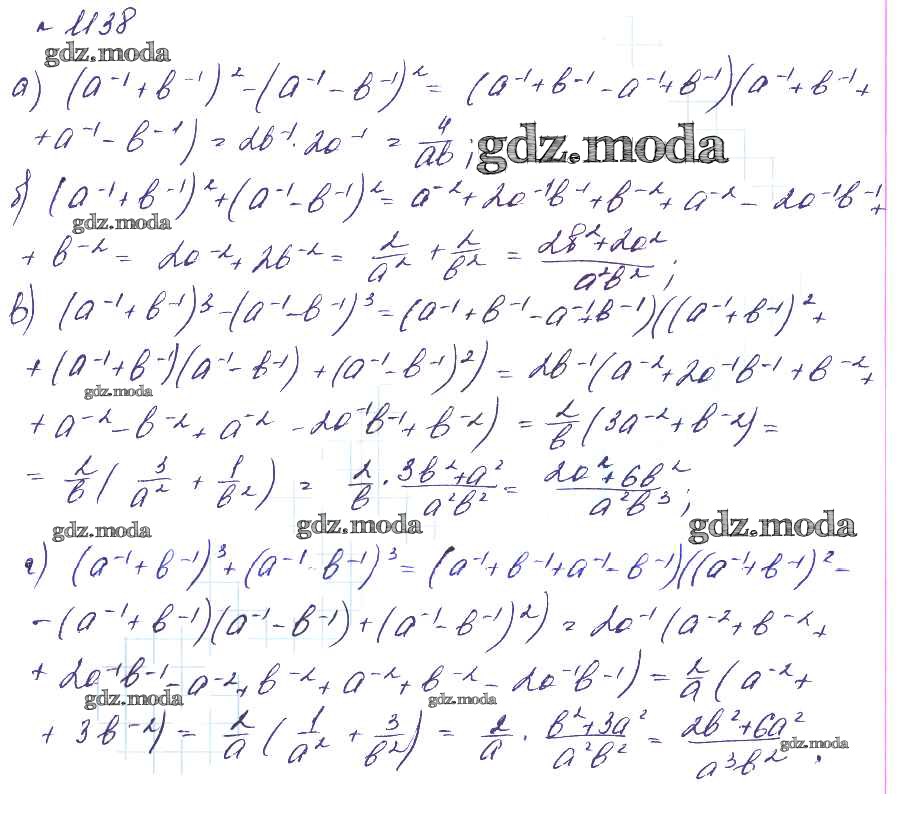 № 1138
gdz.moda
а) (a⁻¹+b⁻¹)² −(a⁻¹−b⁻¹)² = (a⁻¹+b⁻¹−a⁻¹+b⁻¹)(a⁻¹+b⁻¹+
+a⁻¹−b⁻¹) = 2b⁻¹·2a⁻¹ = 4/ab; gdz.moda
б) (a⁻¹+b⁻¹)²+(a⁻¹−b⁻¹)² = a⁻²+2a⁻¹b⁻¹+b⁻²+a⁻²−2a⁻¹b⁻¹+
gdz.moda
+ b⁻² = 2a⁻²+2b⁻² = 2/a² + 2/b² = (2b²+2a²)/(a²b²);
в) (a⁻¹+b⁻¹)³−(a⁻¹−b⁻¹)³ = (a⁻¹+b⁻¹−a⁻¹+b⁻¹)((a⁻¹+b⁻¹)²+
+(a⁻¹+b⁻¹)(a⁻¹−b⁻¹)+(a⁻¹−b⁻¹)²) = 2b⁻¹(a⁻²+2a⁻¹b⁻¹+b⁻²+
gdz.moda
+a⁻²−b⁻²+a⁻²−2a⁻¹b⁻¹+b⁻²) = 2/b (3a⁻²+b⁻²) =
= 2/b (3/a² + 1/b²) = 2/b · (3b²+a²)/(a²b²) = (2a²+6b²)/(a²b³);
gdz.moda gdz.moda gdz.moda
г) (a⁻¹+b⁻¹)³+(a⁻¹−b⁻¹)³ = (a⁻¹+b⁻¹+a⁻¹−b⁻¹)((a⁻¹+b⁻¹)²−
−(a⁻¹+b⁻¹)(a⁻¹−b⁻¹)+(a⁻¹−b⁻¹)²) = 2a⁻¹(a⁻²+b⁻²+
+2a⁻¹b⁻¹−a⁻²+b⁻²+a⁻²+b⁻²−2a⁻¹b⁻¹) = 2/a (a⁻²+
gdz.moda gdz.moda
+ 3b⁻²) = 2/a (1/a² + 3/b²) = 2/a · (b²+3a²)/(a²b²) = (2b²+6a²)/(a³b²).
gdz.moda